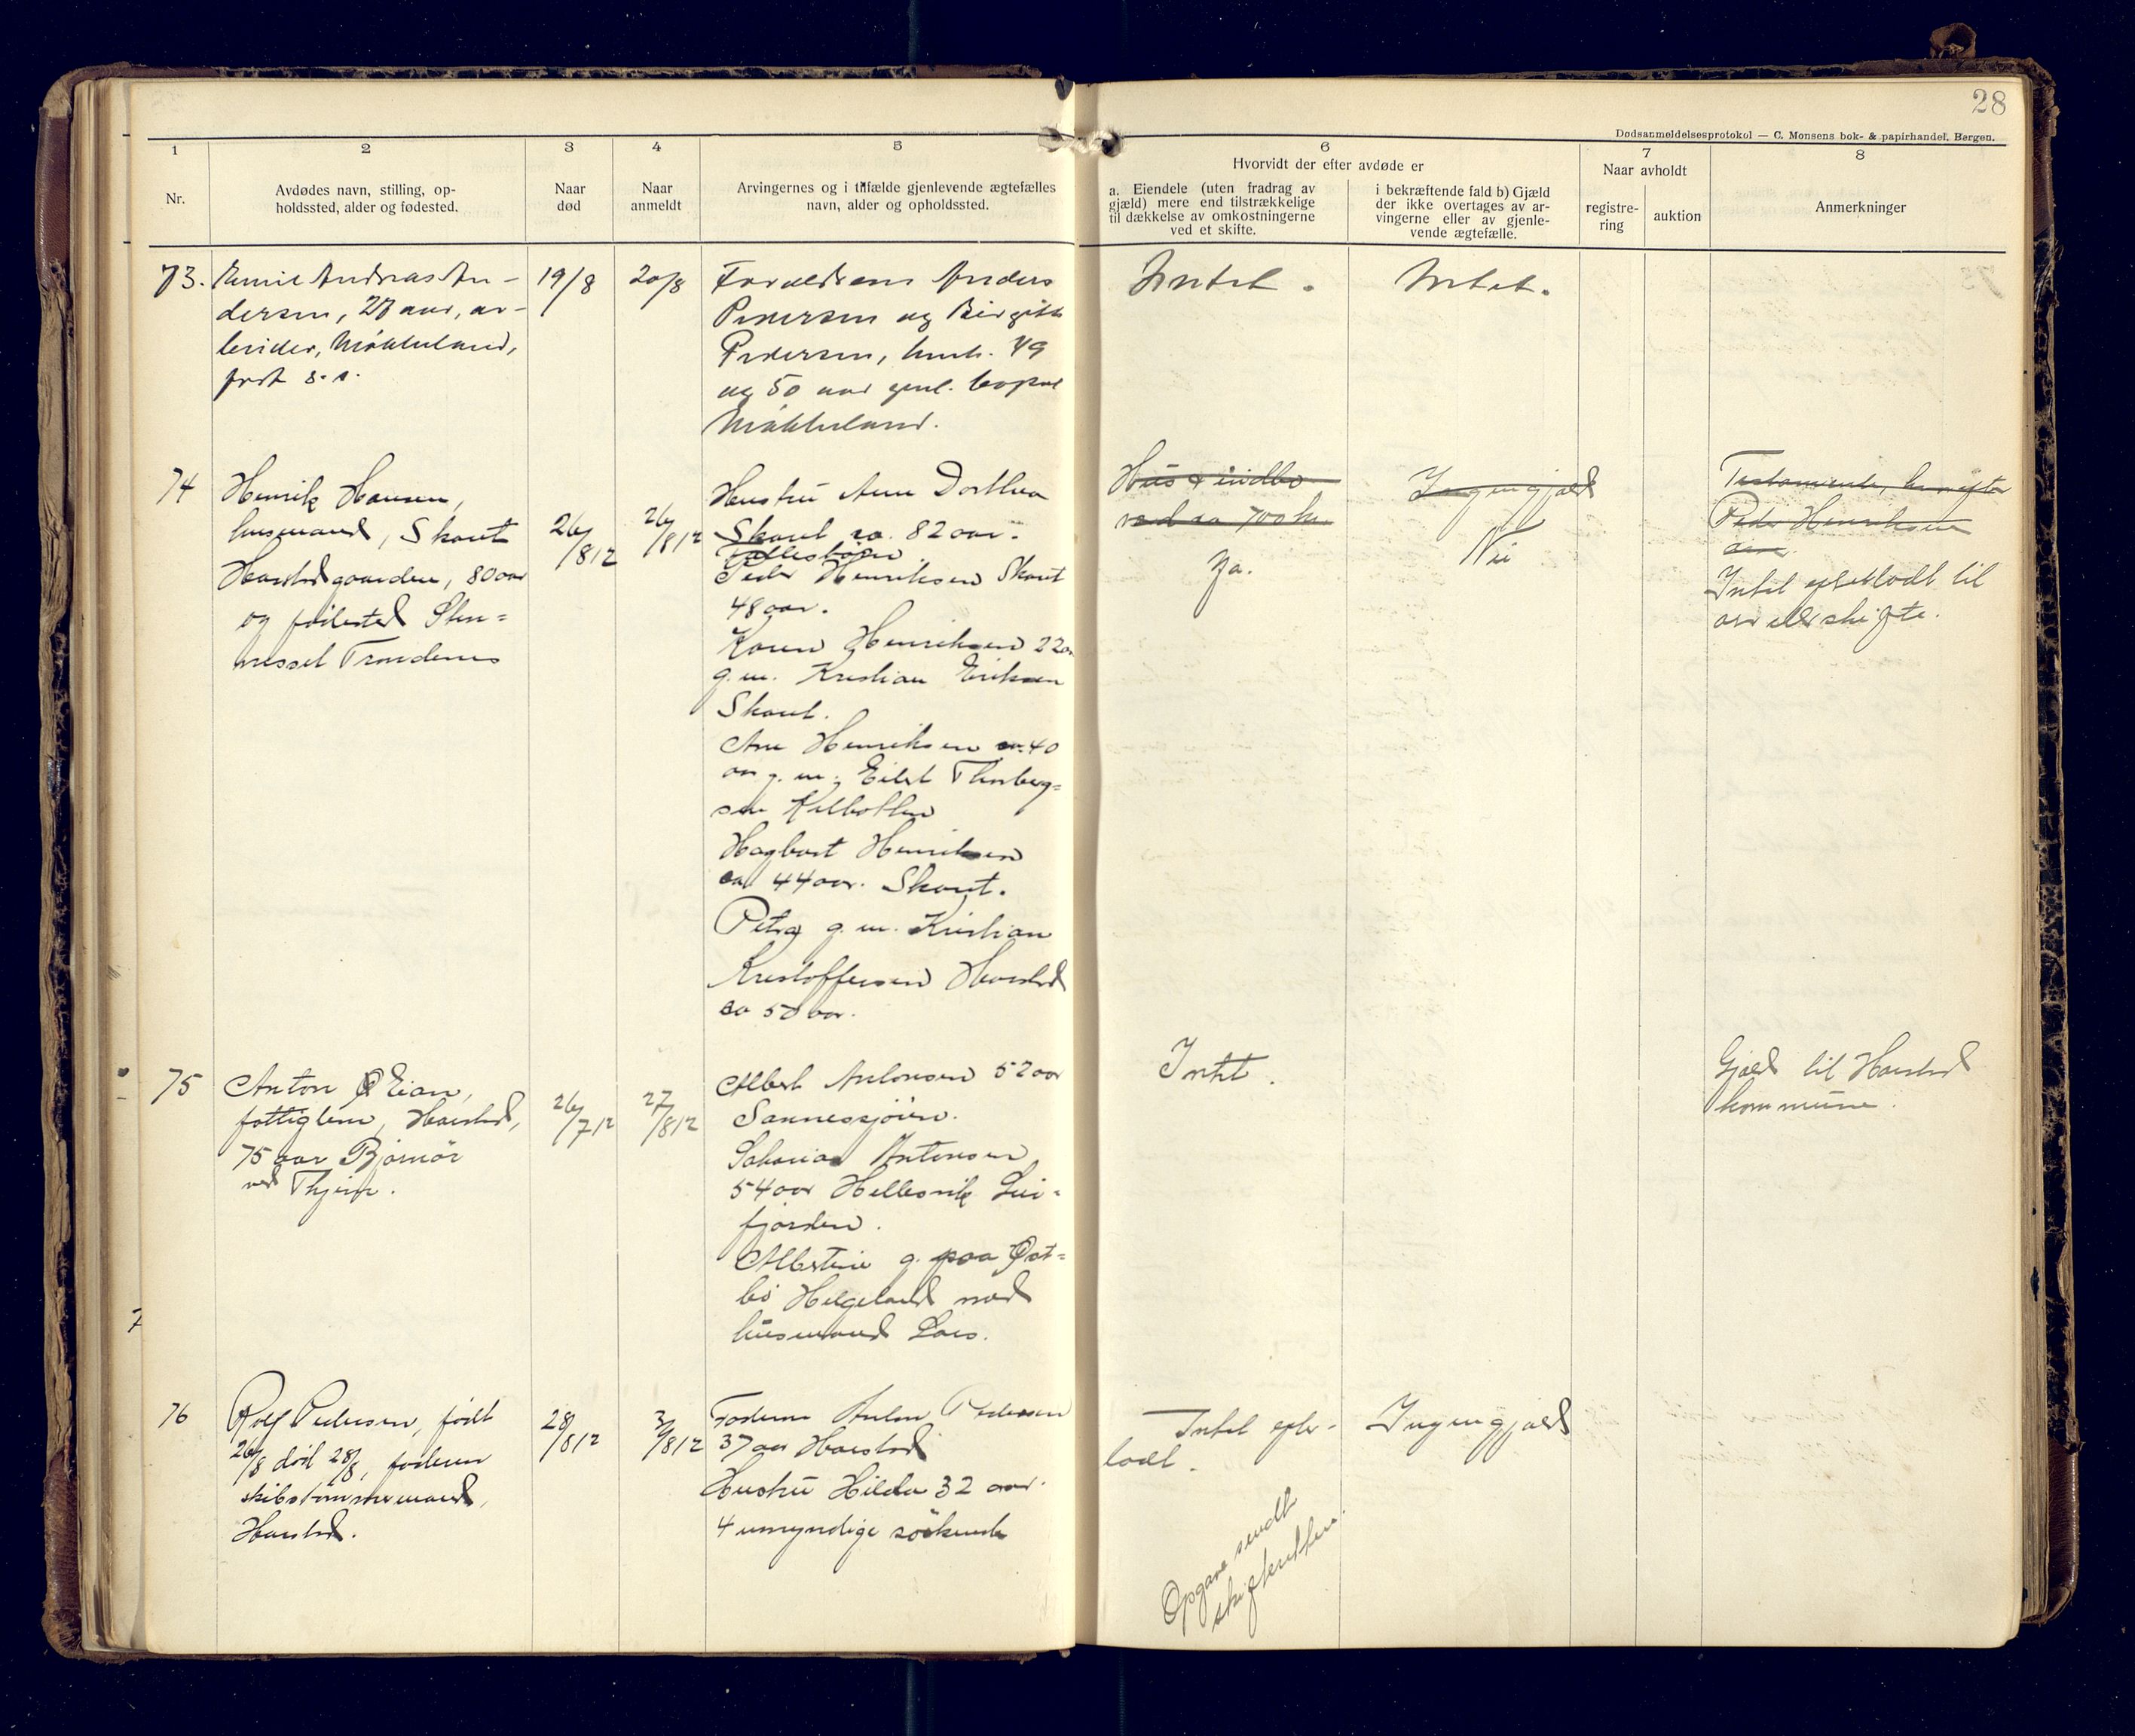 28
Dødsanmeldelsesprotokol — C. Monsens bok- & papirhandel, Bergen.
1
2
3
4
5
6
7
8
Nr.
Avdødes navn, stilling, op-
holdssted, alder og fødested.
Naar
død
Naar
anmeldt
Arvingernes og i tilfælde gjenlevende ægtefælles
navn, alder og opholdssted.
Hvorvidt der efter avdøde er
a. Eiendele (uten fradrag av
gjæld) mere end tilstrækkelige
til dækkelse av omkostningerne
ved et skifte.
i bekræftende fald b) Gjæld
der ikke overtages av ar-
vingerne eller av gjenle-
vende ægtefælle.
Naar avholdt
registre-
ring
auktion
Anmerkninger
73.
Andreas An-
dersen, aar, ar-
beider,
født s. s.
19/8
20/8
Forældrene Anders
Pedersen og Birgitte
Pedersen, henh. 49
og 50 aar gml. bopæl
Intet.
Intet.
74
Henrik Hansen,
husmand, Skout
Harstadgaarden, 80 aar
og fødested Sten-
nesset Trondenes
26/8 12
26/8 12
Hustru Ane Dorthea
Skout ca. 82 aar.
Fællesbørn
Peder Henriksen Skout
48 aar.
Karen Henriksen 22 aar
g. m. Kristian Eriksen
Skout.
Ane Henriksen 40
aar g. m. Eilert Thorberg-
sen Kilbotten
Hagbart Henriksen
ca 44 aar. Skout.
Petra g. m. Kristian
Kristoffersen Harstad
ca 50 aar.
Hus & indbo
verd ca 700 kr.
Ja.
Ingen gjæld
Nei
Testamente, hvorefter
Peder Henriksen
arver.
Intet efterladt til
arv eller skifte.
75
Anton Eian,
fattiglem, Harstad,
75 aar Bjørnør
ved Thjem.
26/7 12
27/8 12
Albert Antonsen 52 aar
Sannessjøen.
Antonsen
54 aar Hellesvik Lei-
fjorden.
Albertine g. paa Øst-
bø Helgeland med
husmand Lars.
Intet.
Gjæld til Harstad
kommune.
76
Rolf Pedersen, født
26/8 død 28/8, faderen
skibstømmermand,
Harstad.
28/8 12
/8 12
Faderen Anton Pedersen
37 aar Harstad
Hustru Hilda 32 aar.
4 umyndige søskende
Intet efter-
ladt.
Ingen gjæld
Opgave sendt
skifteretten.